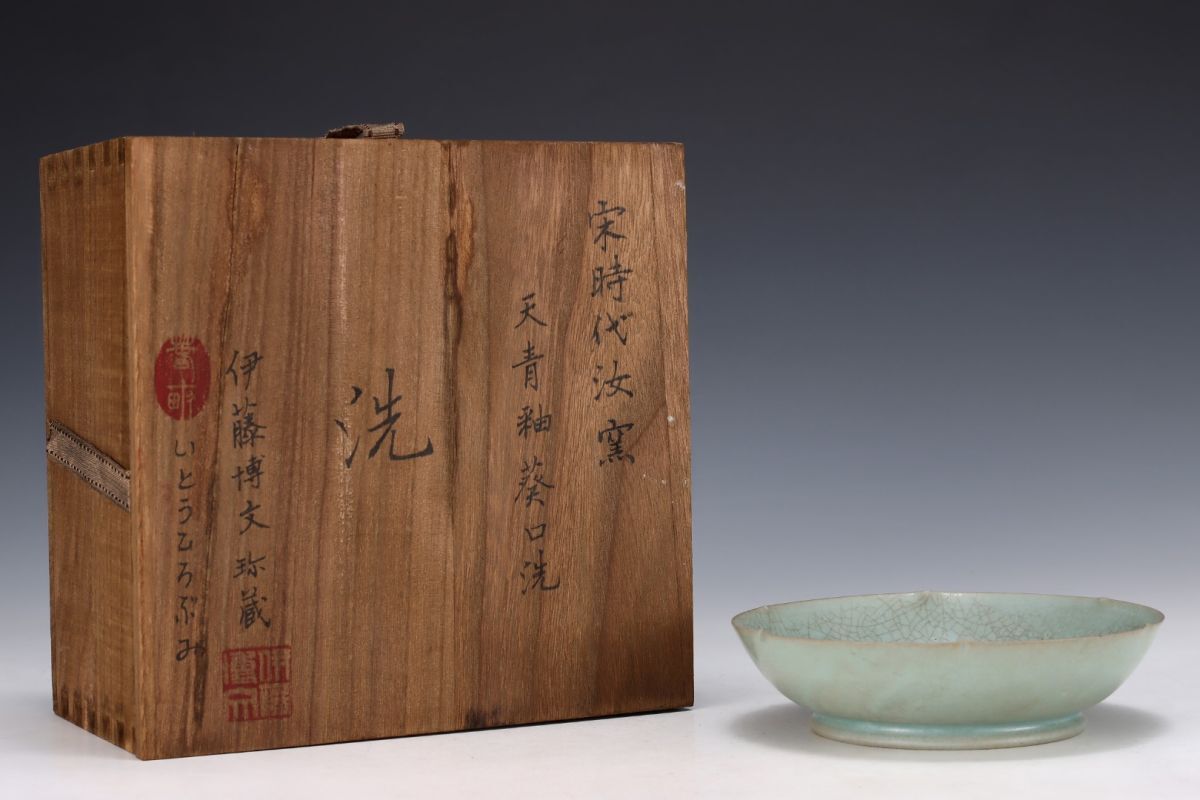 宋時代汝窯
天青釉葵口洗
洗
伊藤博文珎蔵
いとうひろぶみ